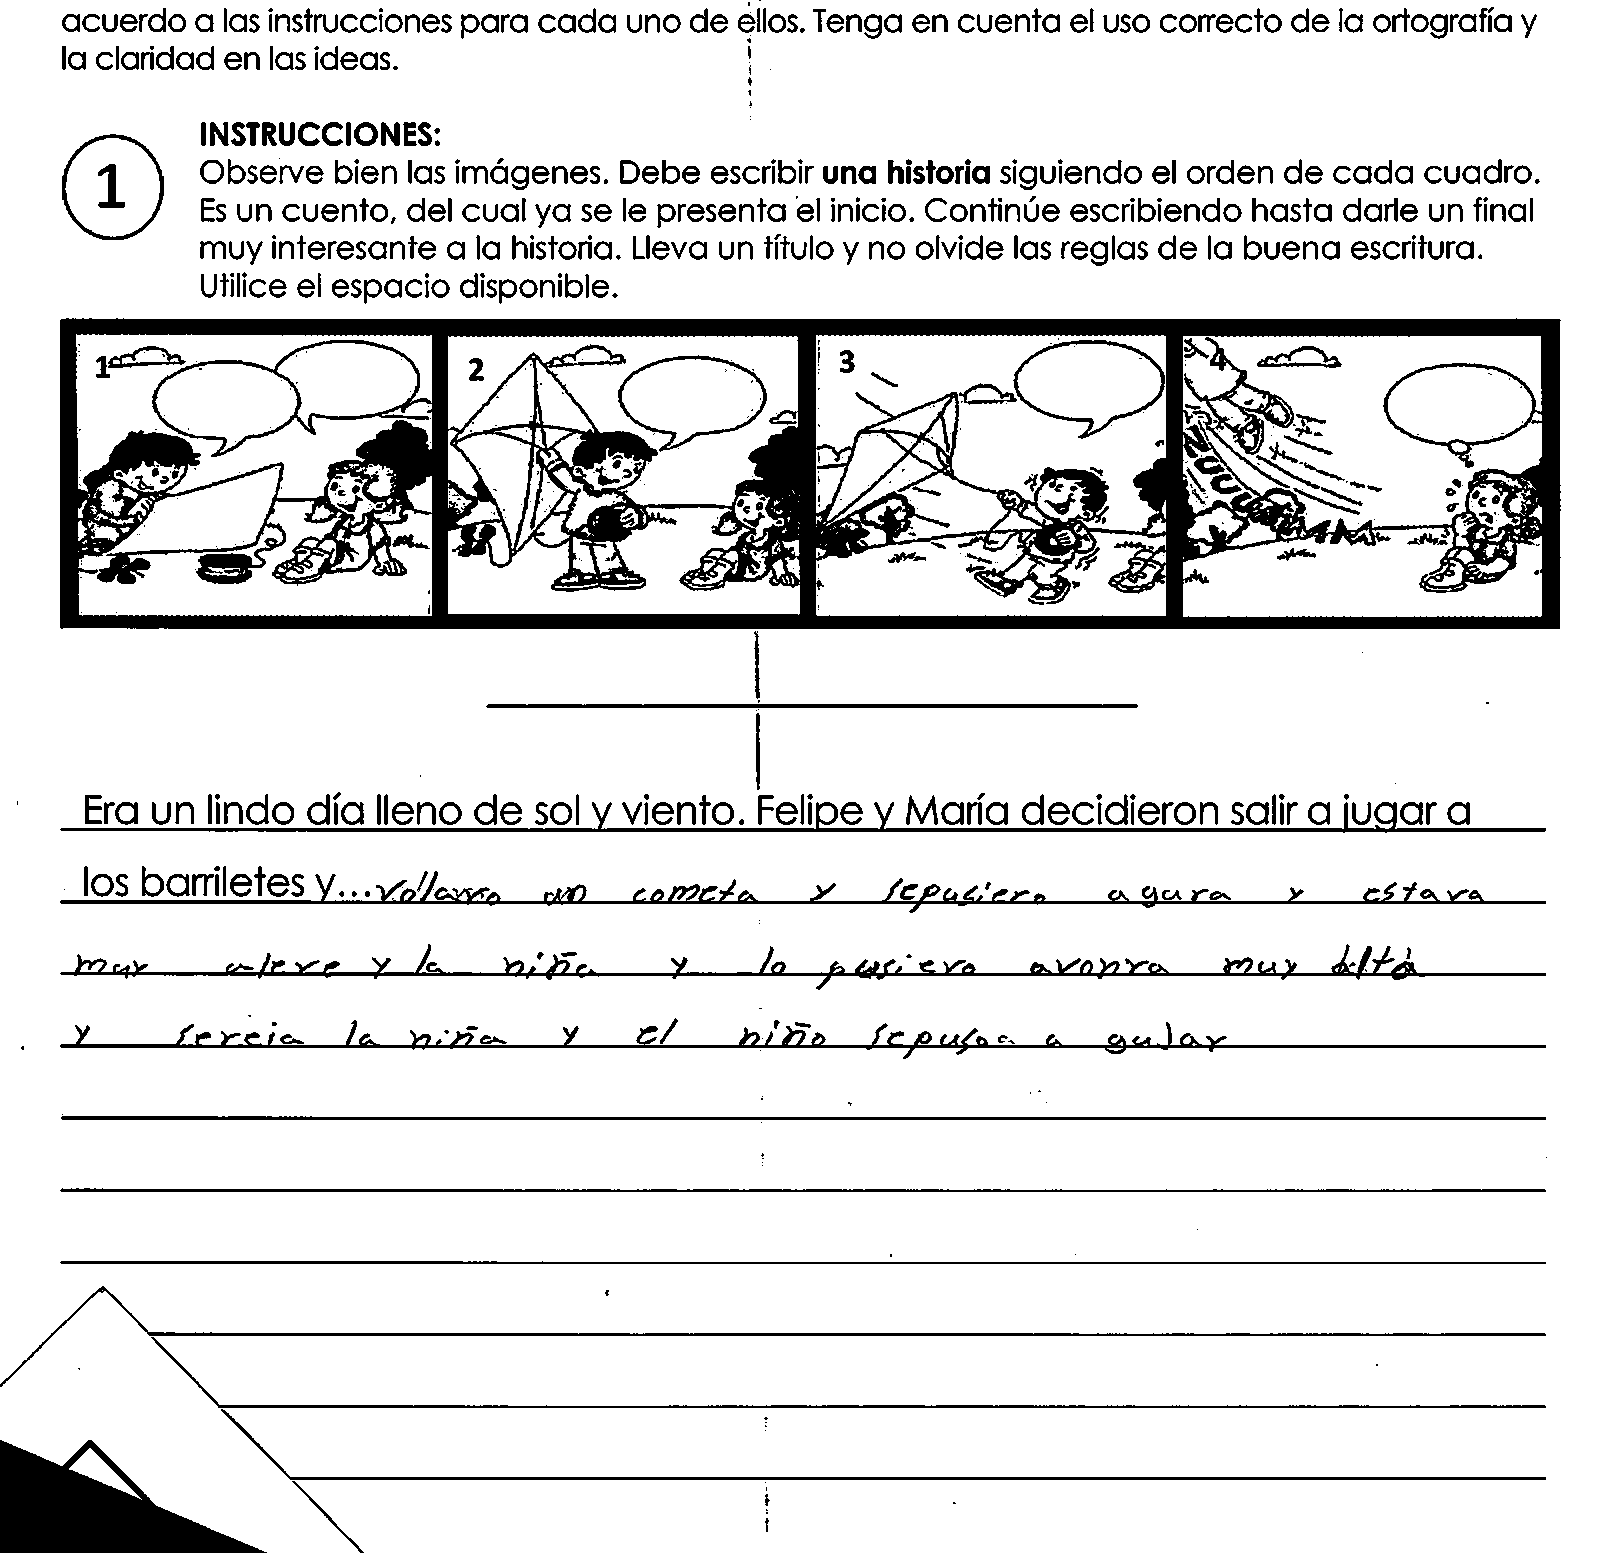 acuerdo a las instrucciones para cada uno de ellos. Tenga en cuenta el uso correcto de la ortografía y
la claridad en las ideas.
1
INSTRUCCIONES:
Observe bien las imágenes. Debe escribir una historia siguiendo el orden de cada cuadro.
Es un cuento, del cual ya se le presenta el inicio. Continúe escribiendo hasta darle un final
muy interesante a la historia. Lleva un título y no olvide las reglas de la buena escritura.
Utilice el espacio disponible.
1 2 3 4
Era un lindo día lleno de sol y viento. Felipe y María decidieron salir a jugar a
los barriletes y... un cometa y sepusiero agura y estava
muy aleve y la niña y lo pusiero muy alta
y sereia la niña y el niño a